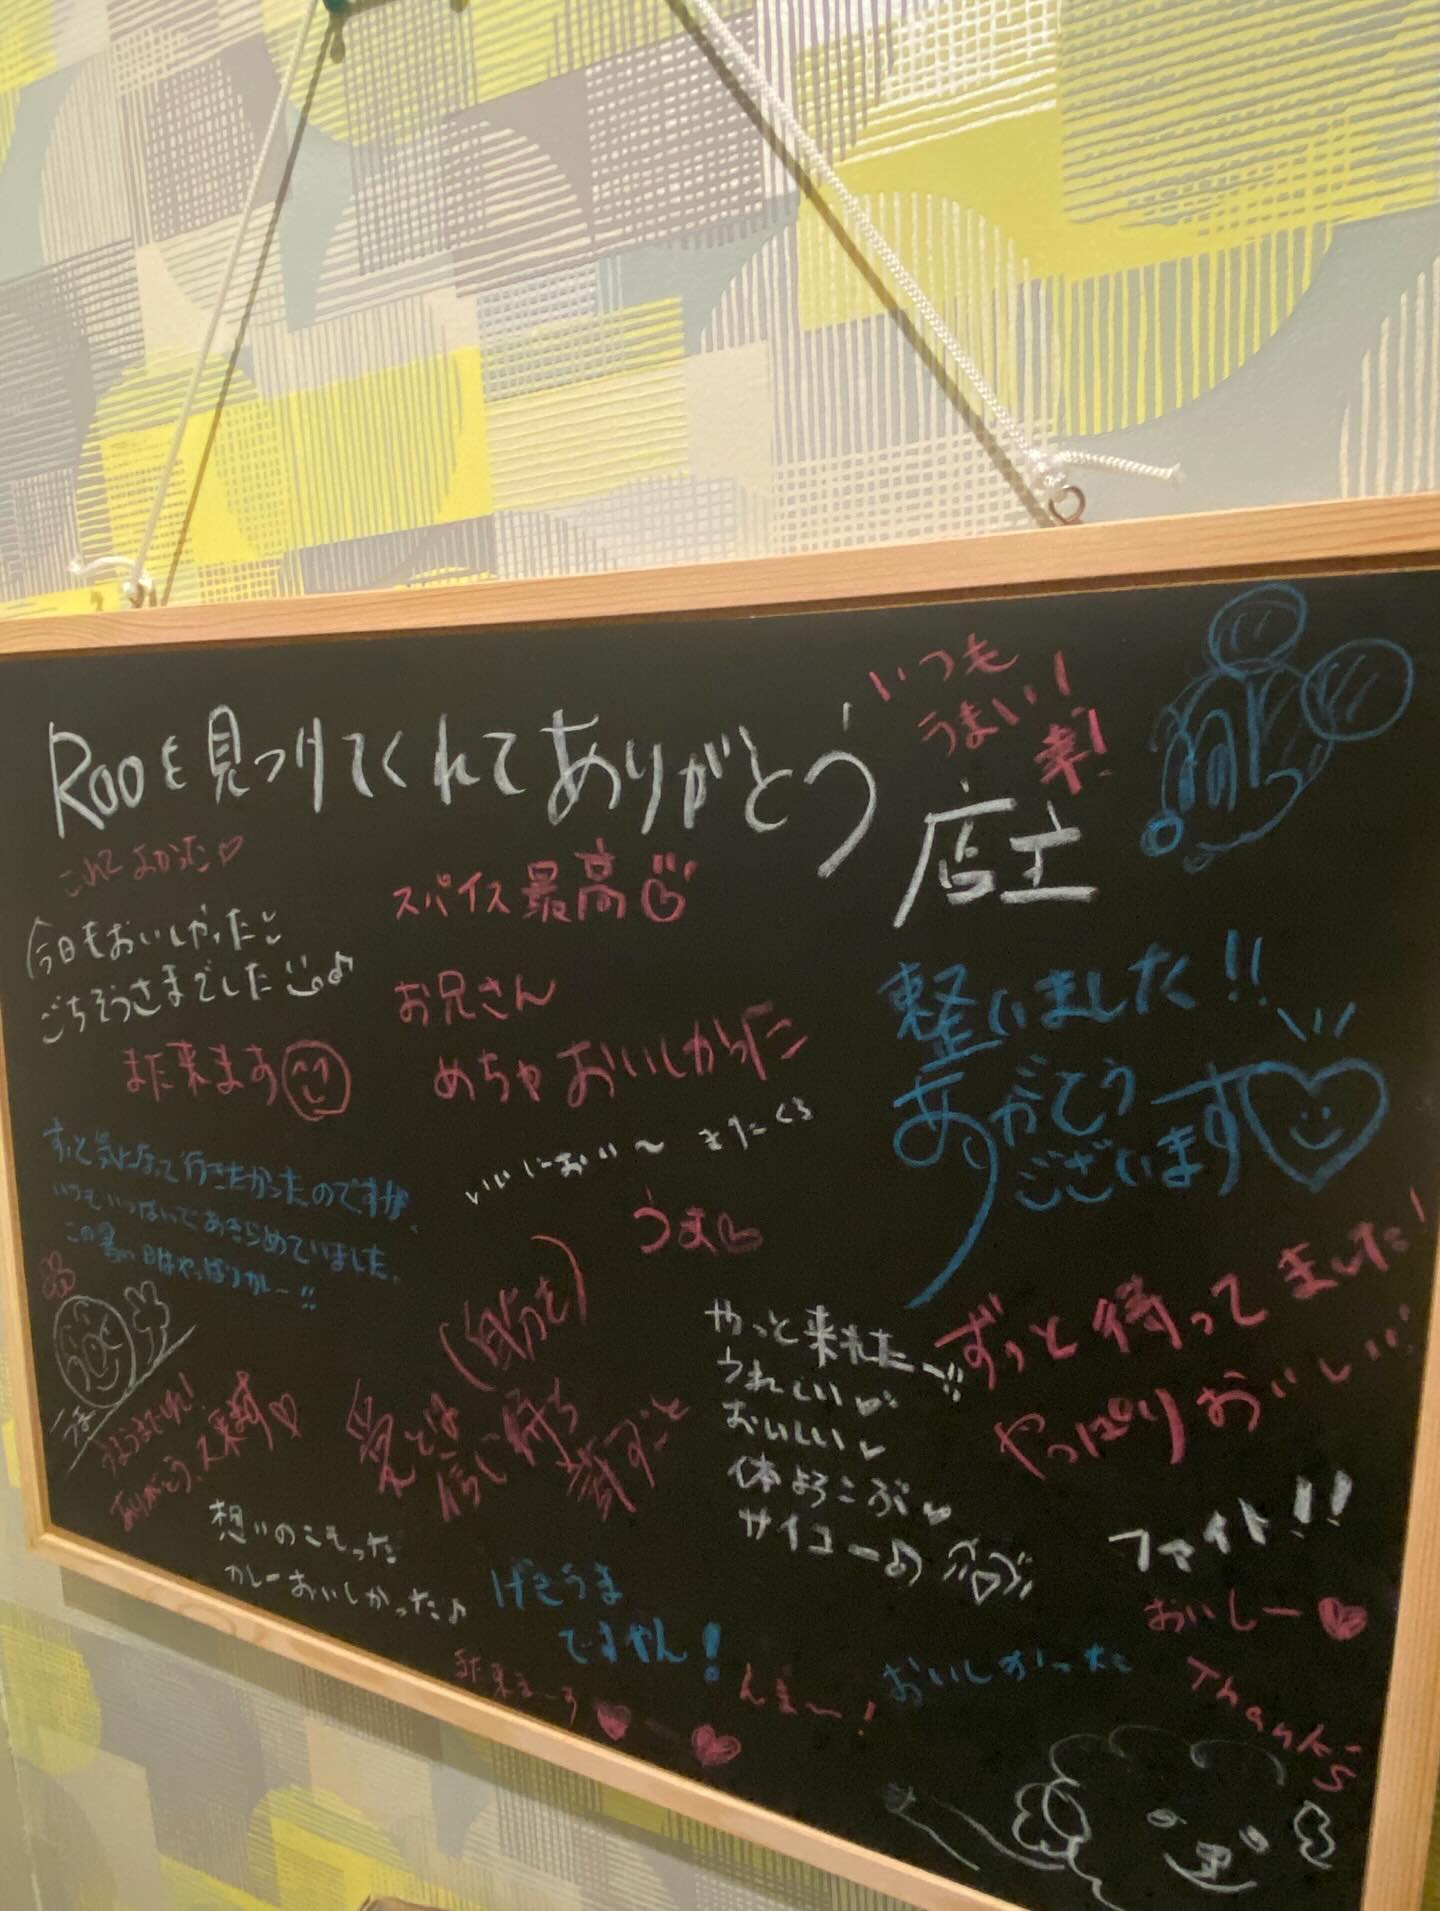 Rooを見つけてくれてありがとう
店主
いつも
うまい!
幸!
これてよかった♡
今日もおいしかった
ごちそうさまでした♪
また来ます
スパイス最高
お兄さん
めちゃおいしかった
整いました!!
ありがとう
ございます
ずっと気になって行きたかったのですが、
いつもいっぱいであきらめていました。
この暑い日はやっぱりカレー!!
いいにおい〜 またくる
うま♡
(自分も)
愛とは
信じ待ち
許すこと
やっと来れたー!!
うれしい♡
おいしい♡
体よろこぶ♥
サイコー♪
ずっと待ってました!
やっぱりおいしい!!
うま
ありがとう、又来ます♡
想いのこもった
カレーおいしかった♪
げきうま
ですやん!
また来まーす♥ー♥
んまー!
おいしかった
ファイト!!
おいしー♥
Thank's